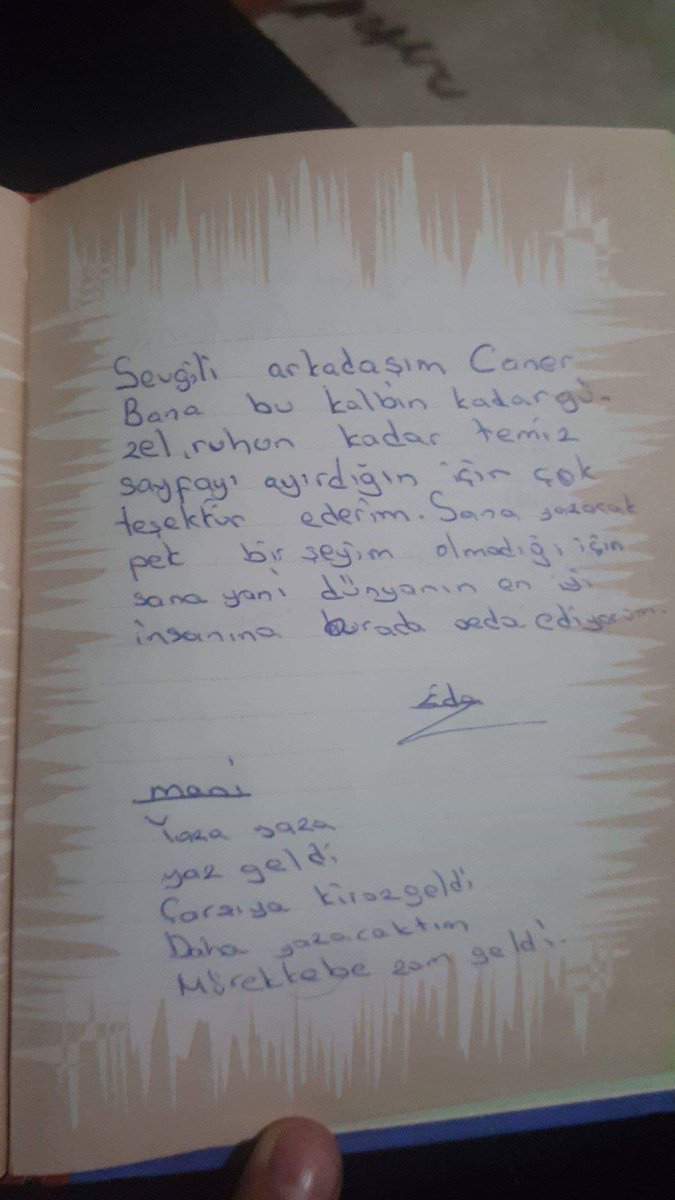 Sevgili arkadaşım Caner
Bana bu kalbin kadar gü-
zel, ruhun kadar temiz
sayfayı ayırdığın için çok
teşektür ederim. Sana yazacak
pek bir şeyim olmadığı için
sana yani dünyanın en iyi
insanına burada veda ediyorum.
Eda
mani
Yaza yaza
yaz geldi
Çarşıya kiraz geldi
Daha yazacaktım
Mürekkebe zam geldi.